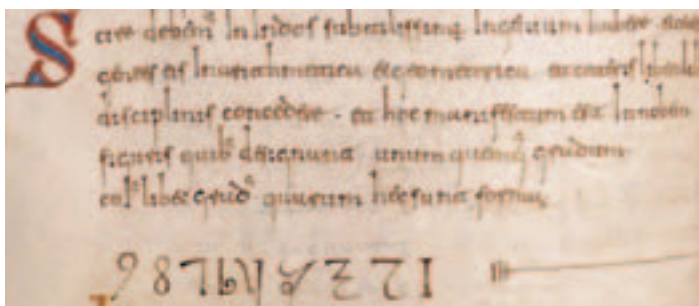 Scire debem' In Indos subtilissimum Ingenium habere
gentes eis In arithmetica et geometrica et ceteris liberali
disciplinis concedere . et hoc manifestum est In nobem
figuris quib' designant unum quemq; gradum
libet grad' quarum hec sunt forma
9 8 7 6 5 4 3 2 1